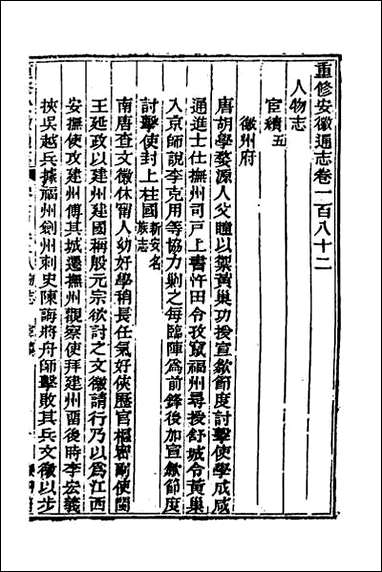 重修安徽通志卷一百八十二
人物志
宦績五
徽州府
唐胡學婺源人父瞳以禦黃巢功授宣歙節度討擊使學成咸
通進士仕撫州司戶上書忤田令孜竄福州尋授舒城令黃巢
入京師說李克用等協力剿之每臨陣為前鋒後加宣歙節度
討擊使封上柱國新安名族志
南唐查文徽休甯人幼好學稍長任氣好俠歷官樞密副使閩
王延政以建州建國稱殷元宗欲討之文徽請行乃以為江西
安撫使攻建州傅其城遷撫州觀察使拜建州畱後時李宏義
挾吳越兵據福州劍州刺史陳誨將舟師擊敗其兵文徽以步